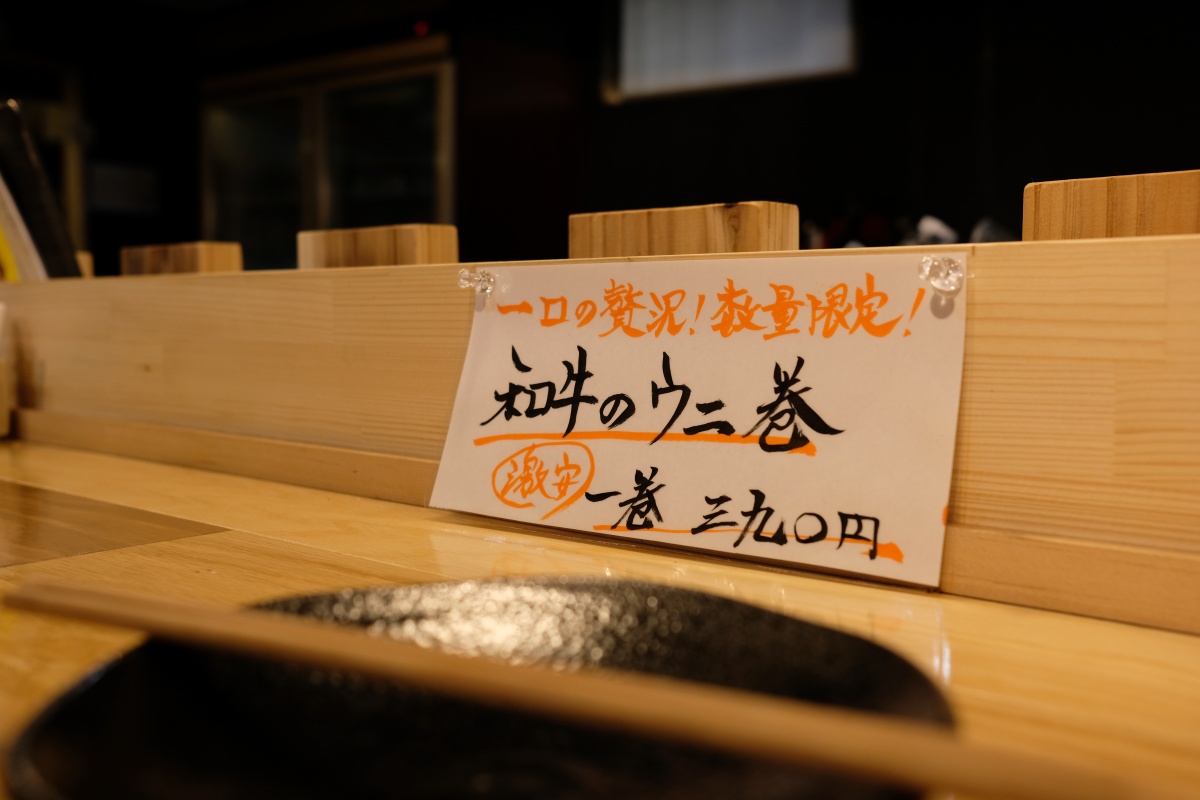 一口の贅沢！数量限定！
和牛のウニ巻
激安 一巻 三九〇円